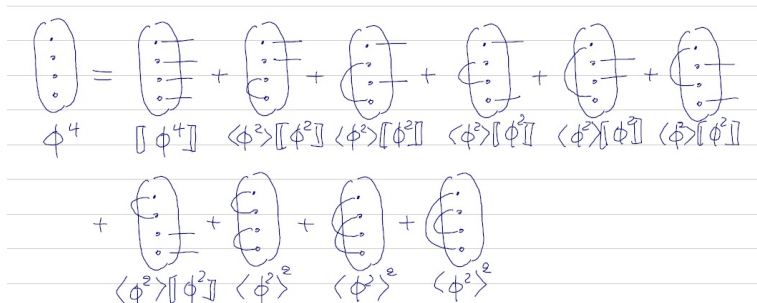 = + + + + +
ϕ⁴ ⟦ϕ⁴⟧ ⟨ϕ²⟩⟦ϕ²⟧ ⟨ϕ²⟩⟦ϕ²⟧ ⟨ϕ²⟩⟦ϕ²⟧ ⟨ϕ²⟩⟦ϕ²⟧ ⟨ϕ²⟩⟦ϕ²⟧
+ + + +
⟨ϕ²⟩⟦ϕ²⟧ ⟨ϕ²⟩² ⟨ϕ²⟩² ⟨ϕ²⟩²